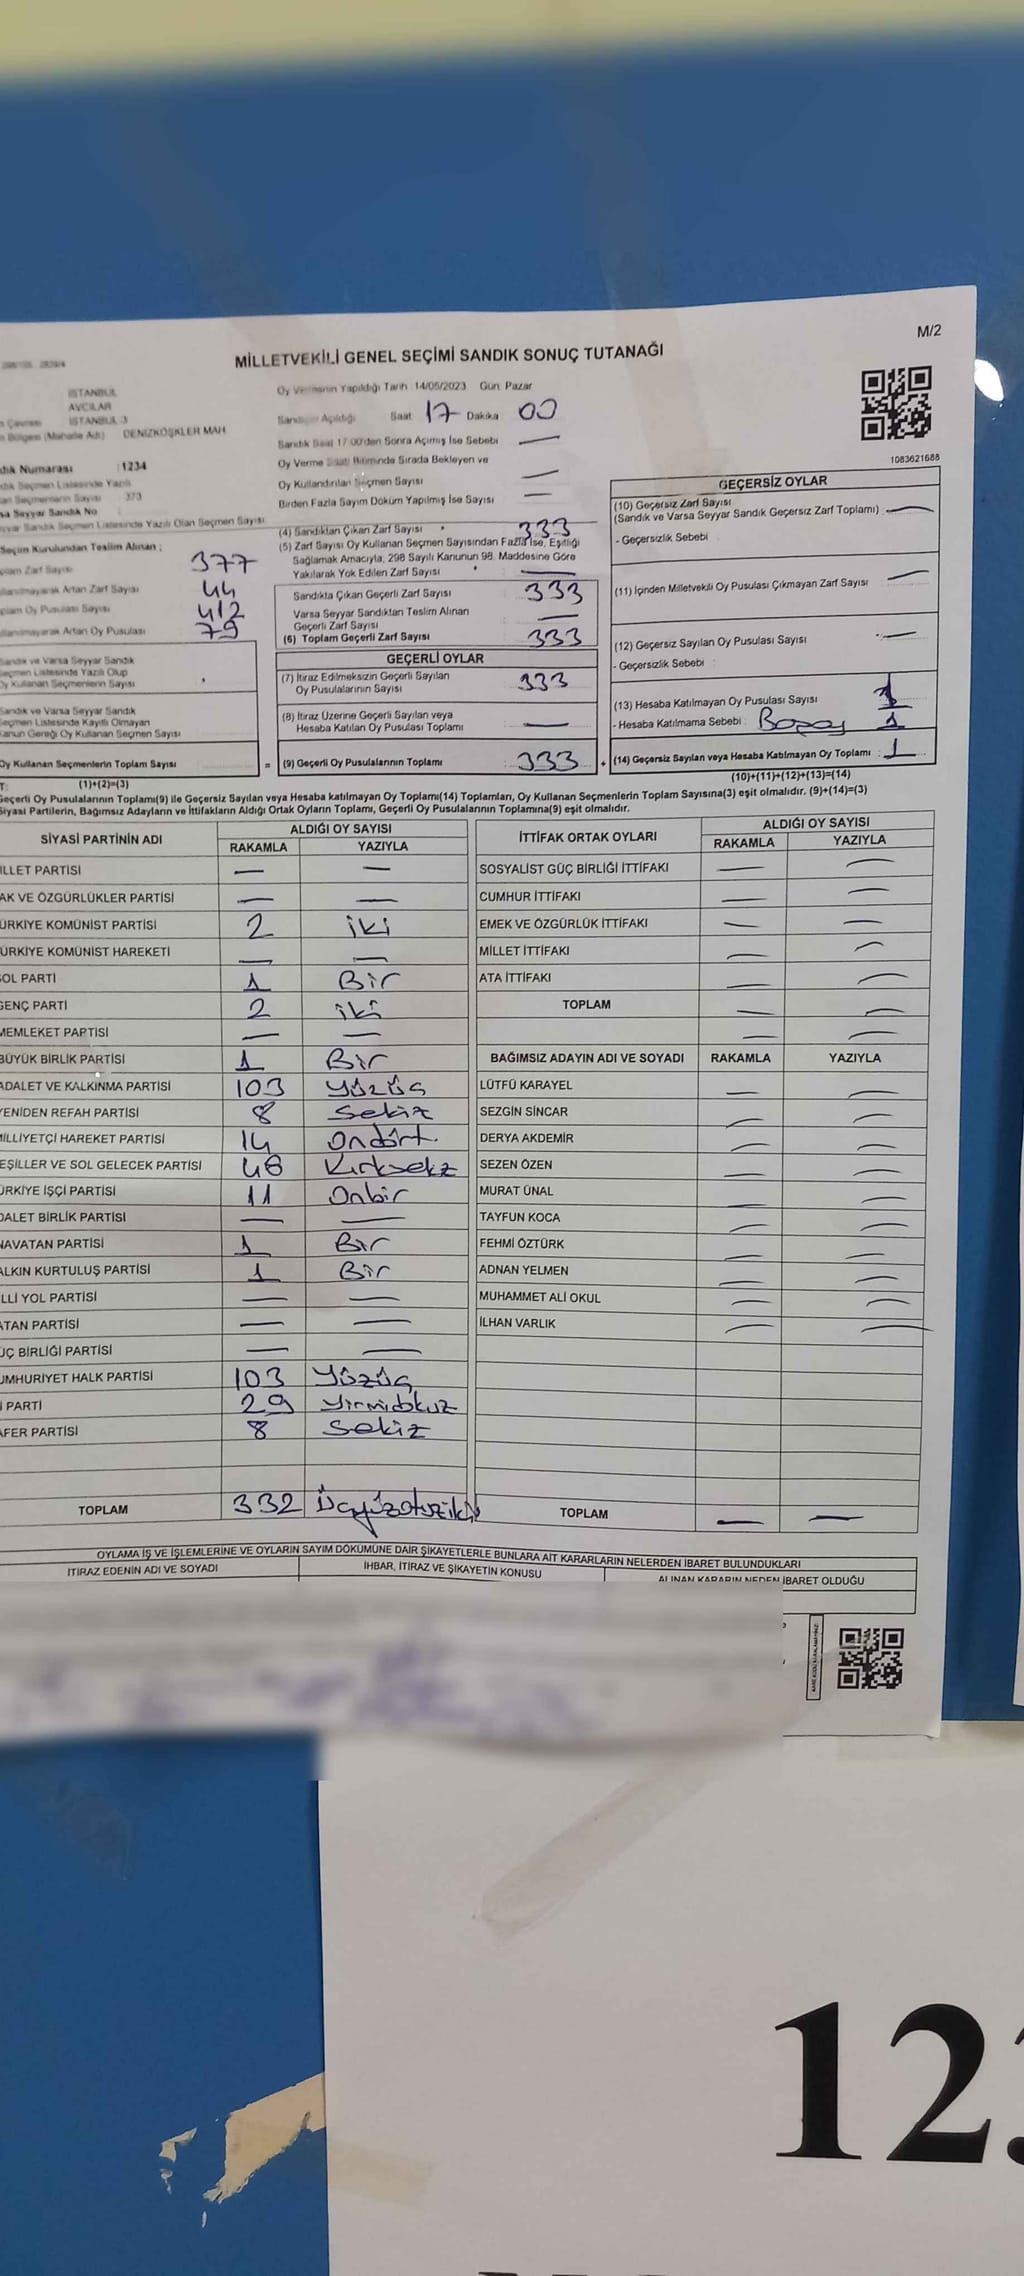 M/2
MİLLETVEKİLİ GENEL SEÇİMİ SANDIK SONUÇ TUTANAĞI
İSTANBUL
AVCILAR
İSTANBUL-3
DENİZKÖŞKLER MAH.
dık Numarası : 1234
373
Seçim Kurulundan Teslim Alınan ;
plam Zarf Sayısı 377
llanılmayarak Artan Zarf Sayısı 44
plam Oy Pusulası Sayısı 412
llanılmayarak Artan Oy Pusulası 79
Sandık ve Varsa Seyyar Sandık
Seçmen Listesinde Yazılı Olup
Oy Kullanan Seçmenlerin Sayısı
Sandık ve Varsa Seyyar Sandık
Seçmen Listesinde Kayıtlı Olmayan
Kanun Gereği Oy Kullanan Seçmen Sayısı
Oy Kullanan Seçmenlerin Toplam Sayısı =
(1)+(2)=(3)
Oy Vermenin Yapıldığı Tarih :14/05/2023 Gün: Pazar
Sandığın Açıldığı Saat 17 Dakika 00
Sandık Saat 17:00'den Sonra Açımış İse Sebebi —
Oy Verme Saati Bitiminde Sırada Bekleyen ve
Oy Kullandırılan Seçmen Sayısı —
Birden Fazla Sayım Döküm Yapılmış İse Sayısı —
(4) Sandıktan Çıkan Zarf Sayısı 333
(5) Zarf Sayısı Oy Kullanan Seçmen Sayısından Fazla İse, Eşitliği
Sağlamak Amacıyla, 298 Sayılı Kanunun 98. Maddesine Göre
Yakılarak Yok Edilen Zarf Sayısı —
Sandıkta Çıkan Geçerli Zarf Sayısı 333
Varsa Seyyar Sandıktan Teslim Alınan
Geçerli Zarf Sayısı —
(6) Toplam Geçerli Zarf Sayısı 333
GEÇERLİ OYLAR
(7) İtiraz Edilmeksizin Geçerli Sayılan
Oy Pusulalarının Sayısı 333
(8) İtiraz Üzerine Geçerli Sayılan veya
Hesaba Katılan Oy Pusulası Toplamı —
(9) Geçerli Oy Pusulalarının Toplamı : 333 +
1083621688
GEÇERSİZ OYLAR
(10) Geçersiz Zarf Sayısı
(Sandık ve Varsa Seyyar Sandık Geçersiz Zarf Toplamı) —
- Geçersizlik Sebebi
(11) İçinden Milletvekili Oy Pusulası Çıkmayan Zarf Sayısı —
(12) Geçersiz Sayılan Oy Pusulası Sayısı : —
- Geçersizlik Sebebi :
(13) Hesaba Katılmayan Oy Pusulası Sayısı 1
- Hesaba Katılmama Sebebi : 1
(14) Geçersiz Sayılan veya Hesaba Katılmayan Oy Toplamı : 1
(10)+(11)+(12)+(13)=(14)
Geçerli Oy Pusulalarının Toplamı(9) ile Geçersiz Sayılan veya Hesaba Katılmayan Oy Toplamı(14) Toplamları, Oy Kullanan Seçmenlerin Toplam Sayısına(3) eşit olmalıdır. (9)+(14)=(3)
Siyasi Partilerin, Bağımsız Adayların ve İttifakların Aldığı Ortak Oyların Toplamı, Geçerli Oy Pusulalarının Toplamına(9) eşit olmalıdır.
SİYASİ PARTİNİN ADI ALDIĞI OY SAYISI
RAKAMLA YAZIYLA
İLLET PARTİSİ — —
AK VE ÖZGÜRLÜKLER PARTİSİ — —
ÜRKİYE KOMÜNİST PARTİSİ 2 iki
ÜRKİYE KOMÜNİST HAREKETİ — —
SOL PARTİ 1 Bir
GENÇ PARTİ 2 iki
MEMLEKET PARTİSİ — —
BÜYÜK BİRLİK PARTİSİ 1 Bir
ADALET VE KALKINMA PARTİSİ 103 Yüzüç
YENİDEN REFAH PARTİSİ 8 Sekiz
MİLLİYETÇİ HAREKET PARTİSİ 14 Ondört.
EŞİLLER VE SOL GELECEK PARTİSİ 48 Kırksekz
ÜRKİYE İŞÇİ PARTİSİ 11 Onbir
DALET BİRLİK PARTİSİ — —
NAVATAN PARTİSİ 1 Bir
ALKIN KURTULUŞ PARTİSİ 1 Bir
LLİ YOL PARTİSİ — —
ATAN PARTİSİ — —
ÜÇ BİRLİĞİ PARTİSİ — —
UMHURİYET HALK PARTİSİ 103 Yüzüç
İ PARTİ 29 Yirmidokuz
AFER PARTİSİ 8 Sekiz
TOPLAM 332 Üçyüzotuziki
İTTİFAK ORTAK OYLARI ALDIĞI OY SAYISI
RAKAMLA YAZIYLA
SOSYALİST GÜÇ BİRLİĞİ İTTİFAKI — —
CUMHUR İTTİFAKI — —
EMEK VE ÖZGÜRLÜK İTTİFAKI — —
MİLLET İTTİFAKI — —
ATA İTTİFAKI — —
TOPLAM — —
BAĞIMSIZ ADAYIN ADI VE SOYADI RAKAMLA YAZIYLA
LÜTFÜ KARAYEL — —
SEZGİN SİNCAR — —
DERYA AKDEMİR — —
SEZEN ÖZEN — —
MURAT ÜNAL — —
TAYFUN KOCA — —
FEHMİ ÖZTÜRK — —
ADNAN YELMEN — —
MUHAMMET ALİ OKUL — —
İLHAN VARLIK — —
TOPLAM — —
OYLAMA İŞ VE İŞLEMLERİNE VE OYLARIN SAYIM DÖKÜMÜNE DAİR ŞİKAYETLERLE BUNLARA AİT KARARLARIN NELERDEN İBARET BULUNDUKLARI
İTİRAZ EDENİN ADI VE SOYADI İHBAR, İTİRAZ VE ŞİKAYETİN KONUSU ALINAN KARARIN NEDEN İBARET OLDUĞU